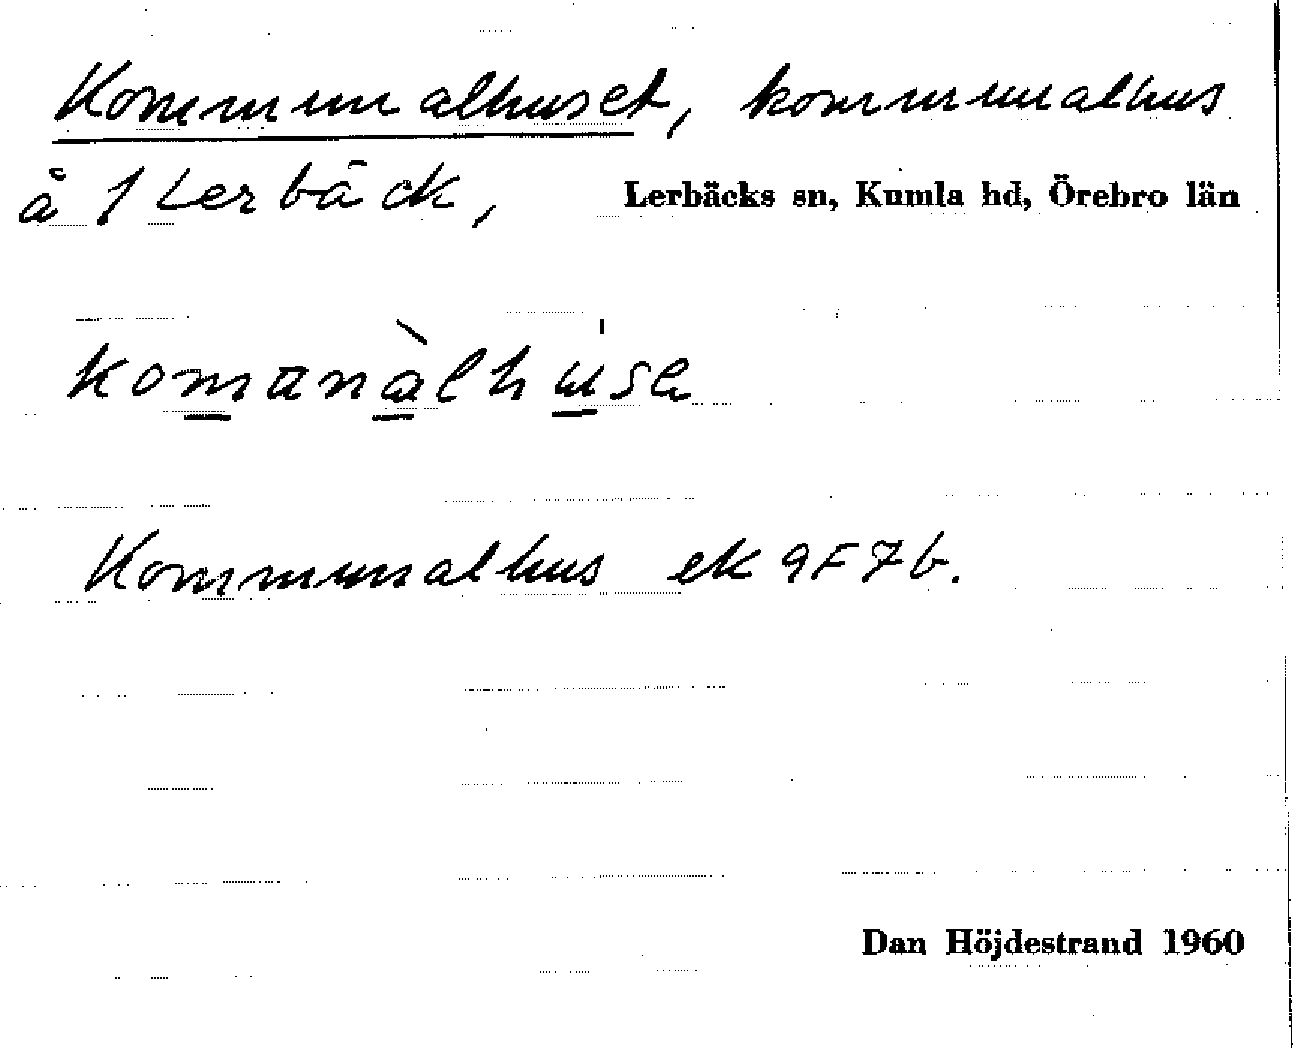 Kommunalhuset, kommunalhus
å 1 Lerbäck, Lerbäcks sn, Kumla hd, Örebro län
komanàlhu̍sa
Kommunalhus ek 9F7b.
Dan Höjdestrand 1960